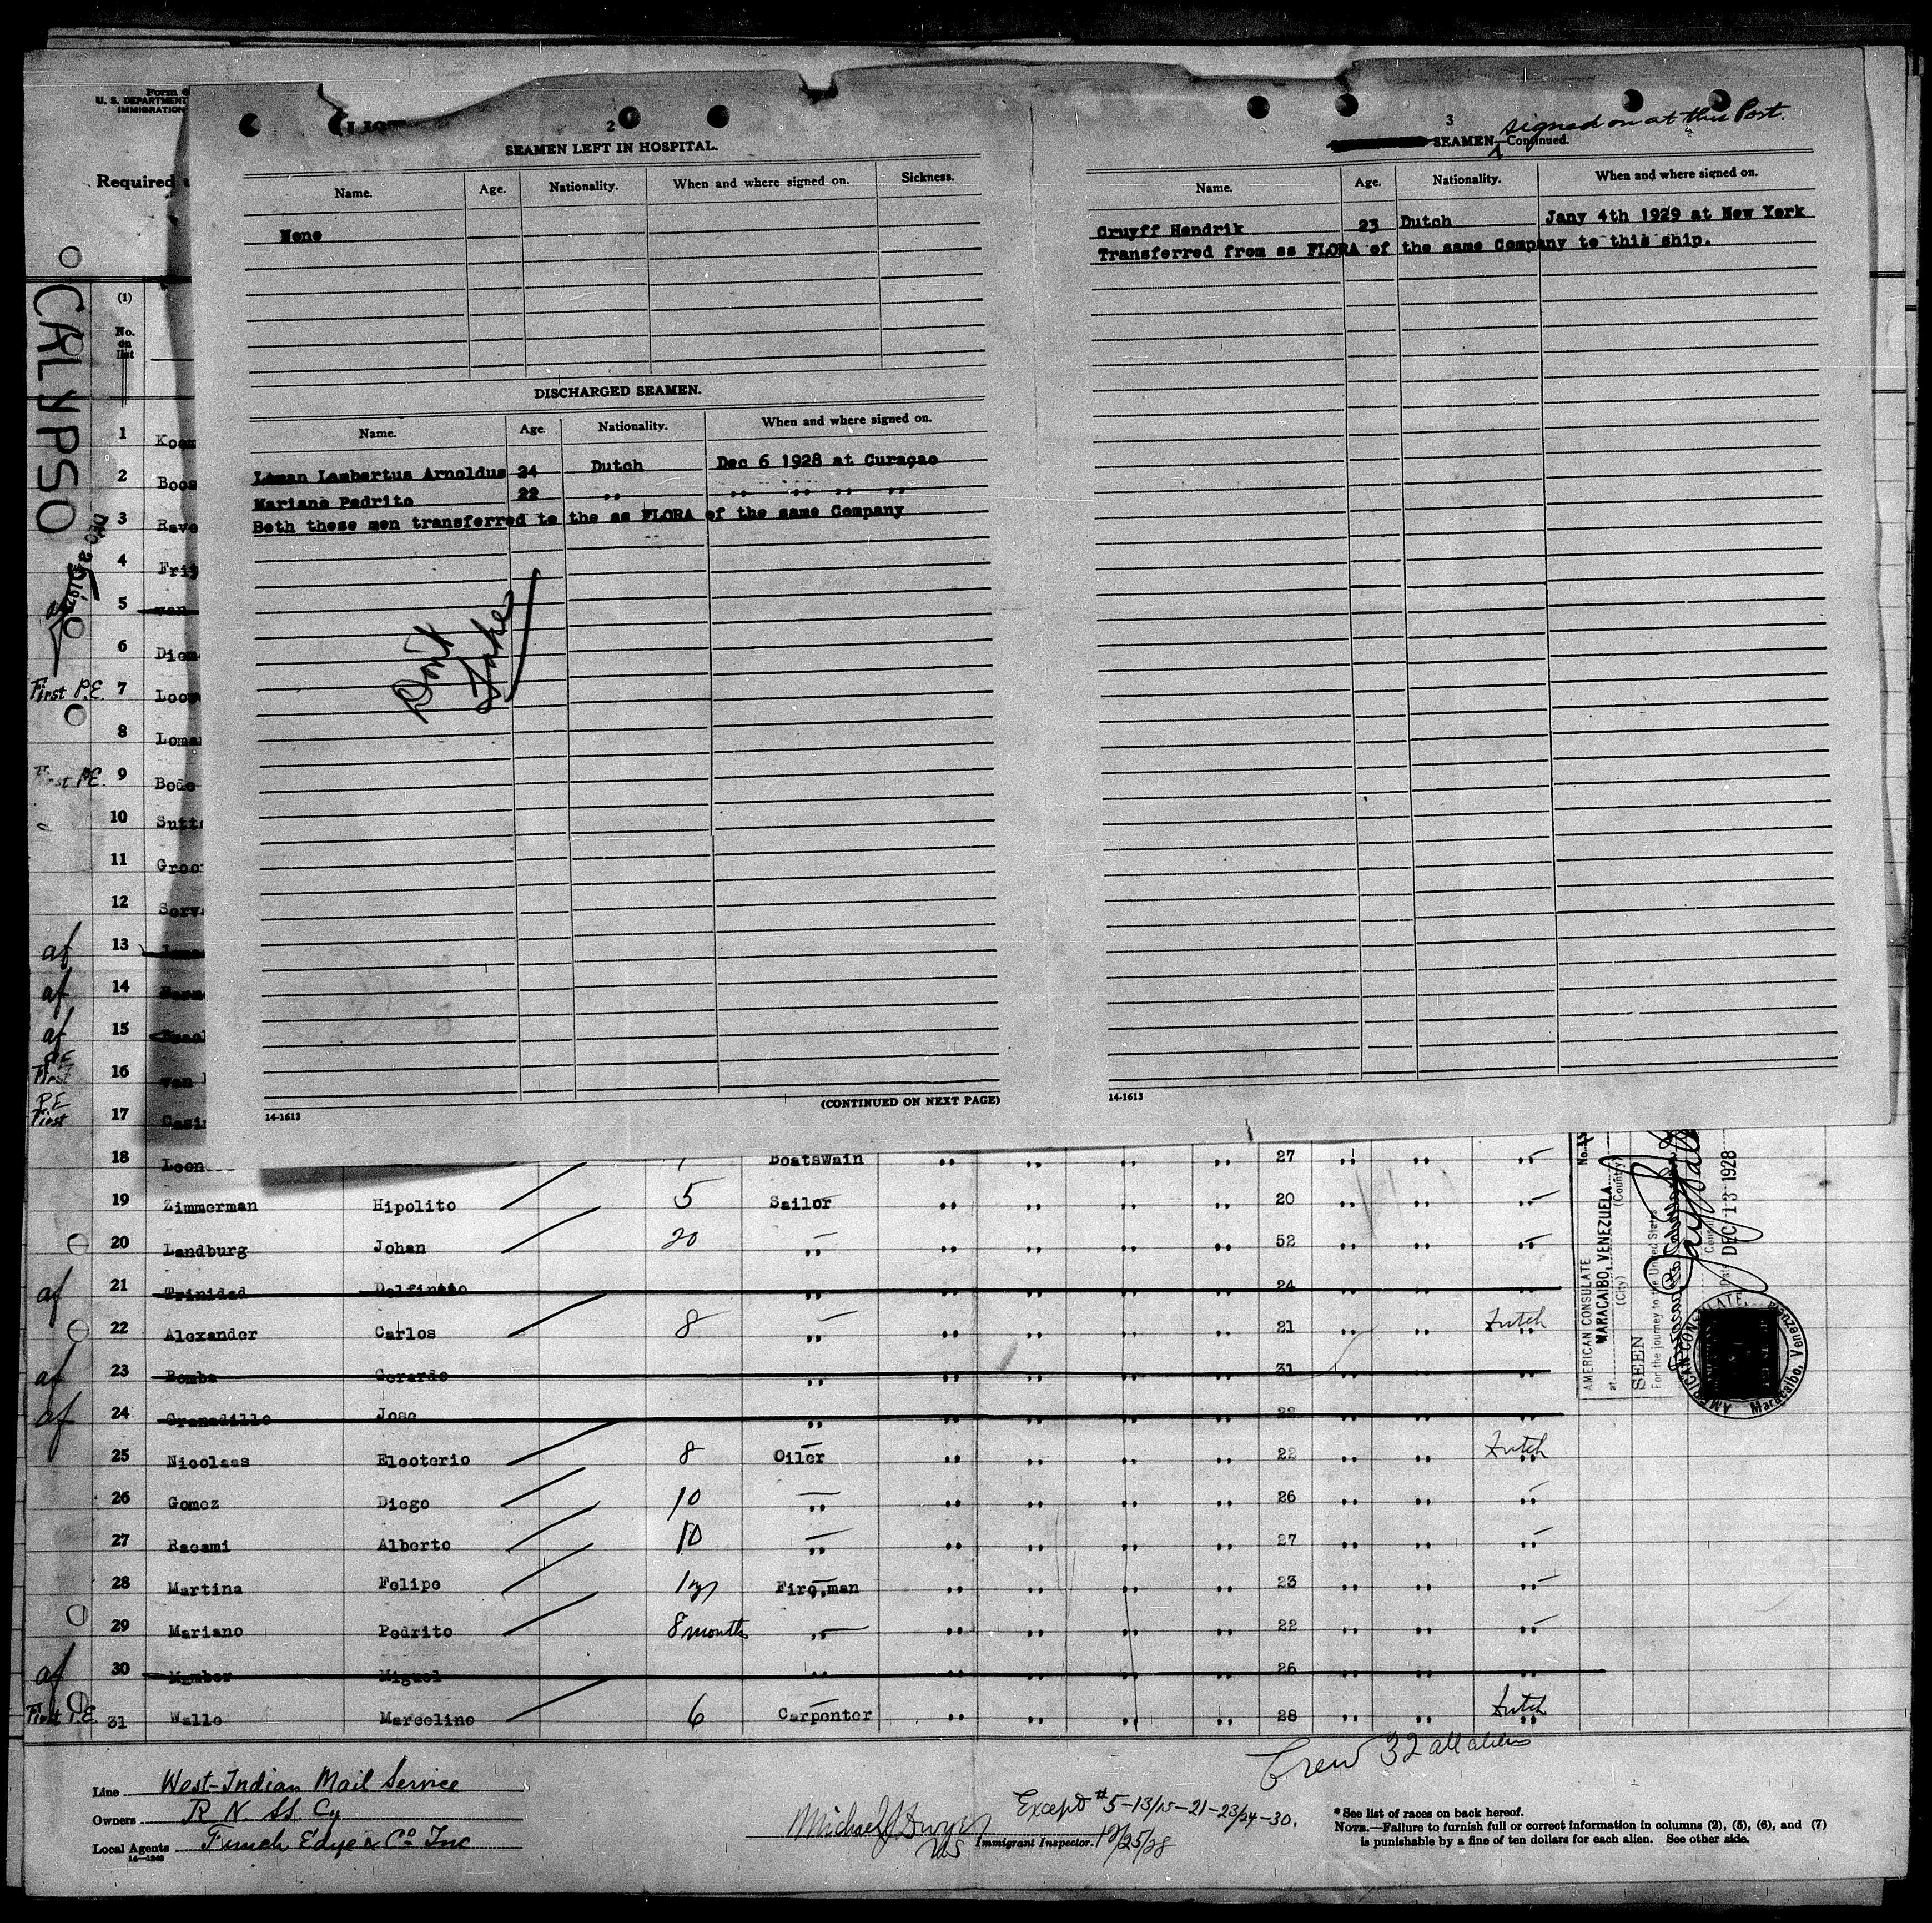 Form
U. S. DEPARTMENT
IMMIGRATION
Required
CALYPSO
(1)
No. on list
2
SEAMEN LEFT IN HOSPITAL.
Name. Age. Nationality. When and where signed on. Sickness.
None
DISCHARGED SEAMEN.
Name. Age. Nationality. When and where signed on.
Laman Lambertus Arnoldus 24 Dutch Dec 6 1928 at Curaçao
Mariano Pedrito 22 ,, ,, ,, ,, ,,
Both these men transferred to the ss FLORA of the same Company
Don't
take
14-1613
(CONTINUED ON NEXT PAGE)
3
signed on at this Port.
SEAMEN—Continued.
Name. Age. Nationality. When and where signed on.
Cruyff Hendrik 23 Dutch Jany 4th 1929 at New York
Transferred from ss FLORA of the same Company to this ship.
14-1613
1 Koem
2 Boos
3 Rave
4 Frij
5 van
6 Diem
First P.E. 7 Loow
8 Loma
First P.E. 9 Bode
10 Sutt
11 Groo
12 Serv
af 13
af 14
af 15
P.E. First 16 van
P.E. First 17 Casi
18 Leon Boatswain ,, ,, ,, ,, 27 ,, ,, ,,
19 Zimmerman Hipolito 5 Sailor ,, ,, ,, ,, 20 ,, ,, ,,
20 Landburg Johan 20 ,, ,, ,, ,, ,, 52 ,, ,, ,,
af 21 Trinidad Delfinito ,, ,, ,, ,, ,, 24 ,, ,, ,,
22 Alexander Carlos 8 ,, ,, ,, ,, ,, 21 ,, ,, Dutch
af 23 Bomba Gerardo ,, ,, ,, ,, ,, 31 ,, ,, ,,
af 24 Granadillo Jose ,, ,, ,, ,, ,, 22 ,, ,, ,,
25 Nicolaas Electerio 8 Oiler ,, ,, ,, ,, 22 ,, ,, Dutch
26 Gomez Diego 10 ,, ,, ,, ,, ,, 26 ,, ,, ,,
27 Racami Alberto 10 ,, ,, ,, ,, ,, 27 ,, ,, ,,
28 Martina Felipe 1 yr Fireman ,, ,, ,, ,, 23 ,, ,, ,,
29 Mariano Pedrito 8 months ,, ,, ,, ,, ,, 22 ,, ,, ,,
af 30 Miguel ,, ,, ,, ,, ,, 26 ,, ,, ,,
First P.E. 31 Wallo Marcelino 6 Carpenter ,, ,, ,, ,, 28 ,, ,, Dutch
AMERICAN CONSULATE
at MARACAIBO, VENEZUELA
(City) (Country)
SEEN
For the journey to the United States
Consul
Date DEC 13 1928
AMERICAN CONSULATE, Maracaibo, Venezuela
Crew 32 all aliens
Except #5-13/15-21-23/24-30.
Line West-Indian Mail Service
Owners R. N. SS. Cy
Local Agents Funch Edye & Co Inc
14—1240
Michael J Dwyer
Immigrant Inspector. 12/25/28
*See list of races on back hereof.
NOTE.—Failure to furnish full or correct information in columns (2), (5), (6), and (7)
is punishable by a fine of ten dollars for each alien. See other side.